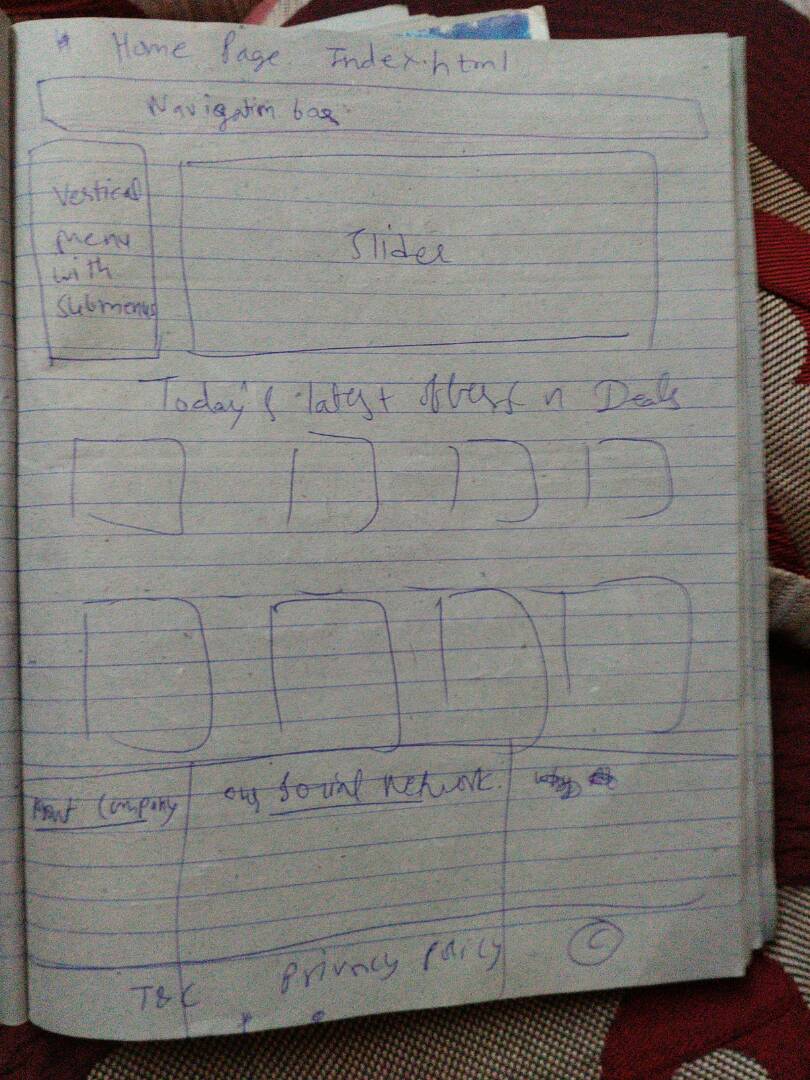 * Home Page Index.html
Navigation bar
Vertical
menu
with
submenus
Slider
Today's latest offers n Deals
Company
our Social Network.
T&C Privacy Policy ©